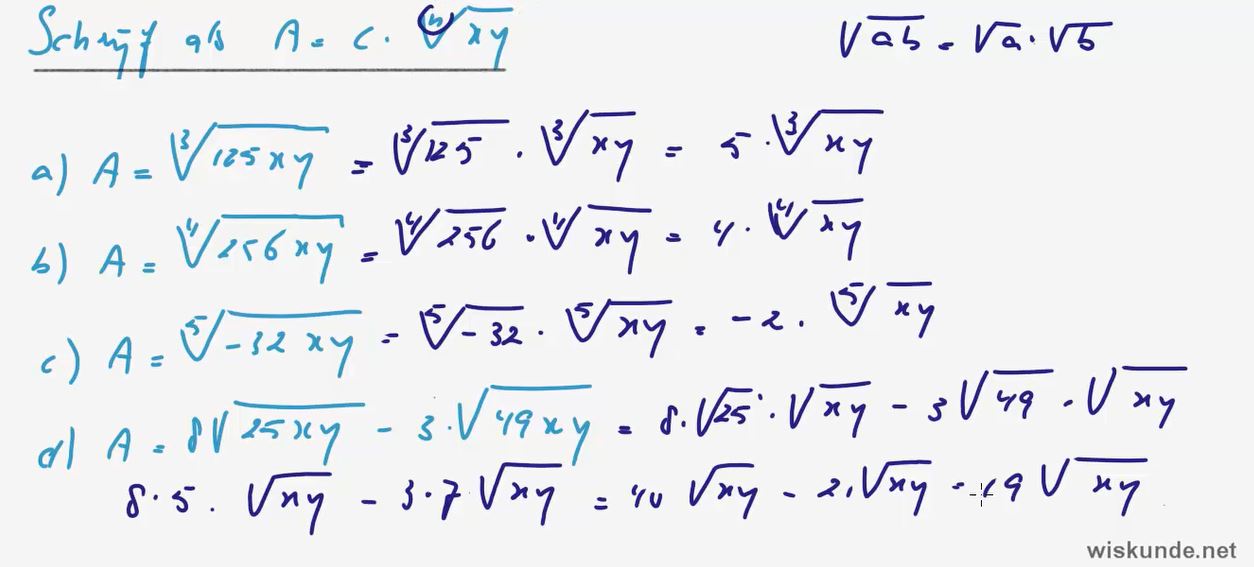 Schrijf als A = c · ⁿ√xy
√ab = √a · √b
a) A = ³√125xy = ³√125 · ³√xy = 5 · ³√xy
b) A = ⁴√256xy = ⁴√256 · ⁴√xy = 4 · ⁴√xy
c) A = ⁵√-32xy = ⁵√-32 · ⁵√xy = -2 · ⁵√xy
d) A = 8√25xy - 3·√49xy = 8·√25 · √xy - 3√49 · √xy
8·5 · √xy - 3·7√xy = 40 √xy - 21√xy = 19√xy
wiskunde.net